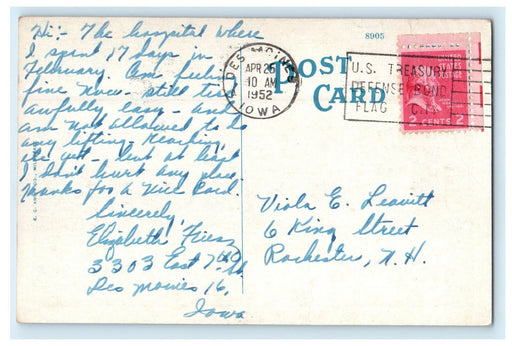 Hi:- The hospital where
I spent 17 days in
February. Am feeling
fine now - still tire
awfully easy - and
am not allowed to do
any lifting, reaching,
etc yet - but at least
I don't hurt any place.
Thanks for a nice card.
Sincerely,
Elizabeth
3303 East 7th St
Des Moines 16,
Iowa
8905
POST
CARD
DES MOINES
APR 26
10 AM
1952
IOWA
U.S. TREASURY
DEFENSE BOND
FLAG CITY
2 CENTS 2
Viola E. Leavitt
6 King Street
Rochester, N.H.